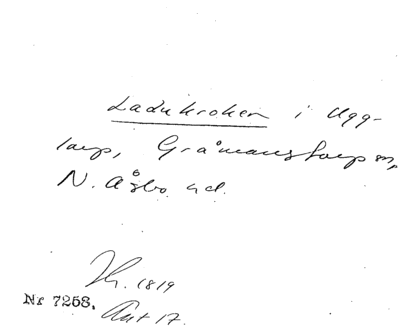 Ladukroken i Ugg-
larp, Gråmanstorps sn,
N. Åsbo hd.
1819
Nr 7258.
Akt 17.